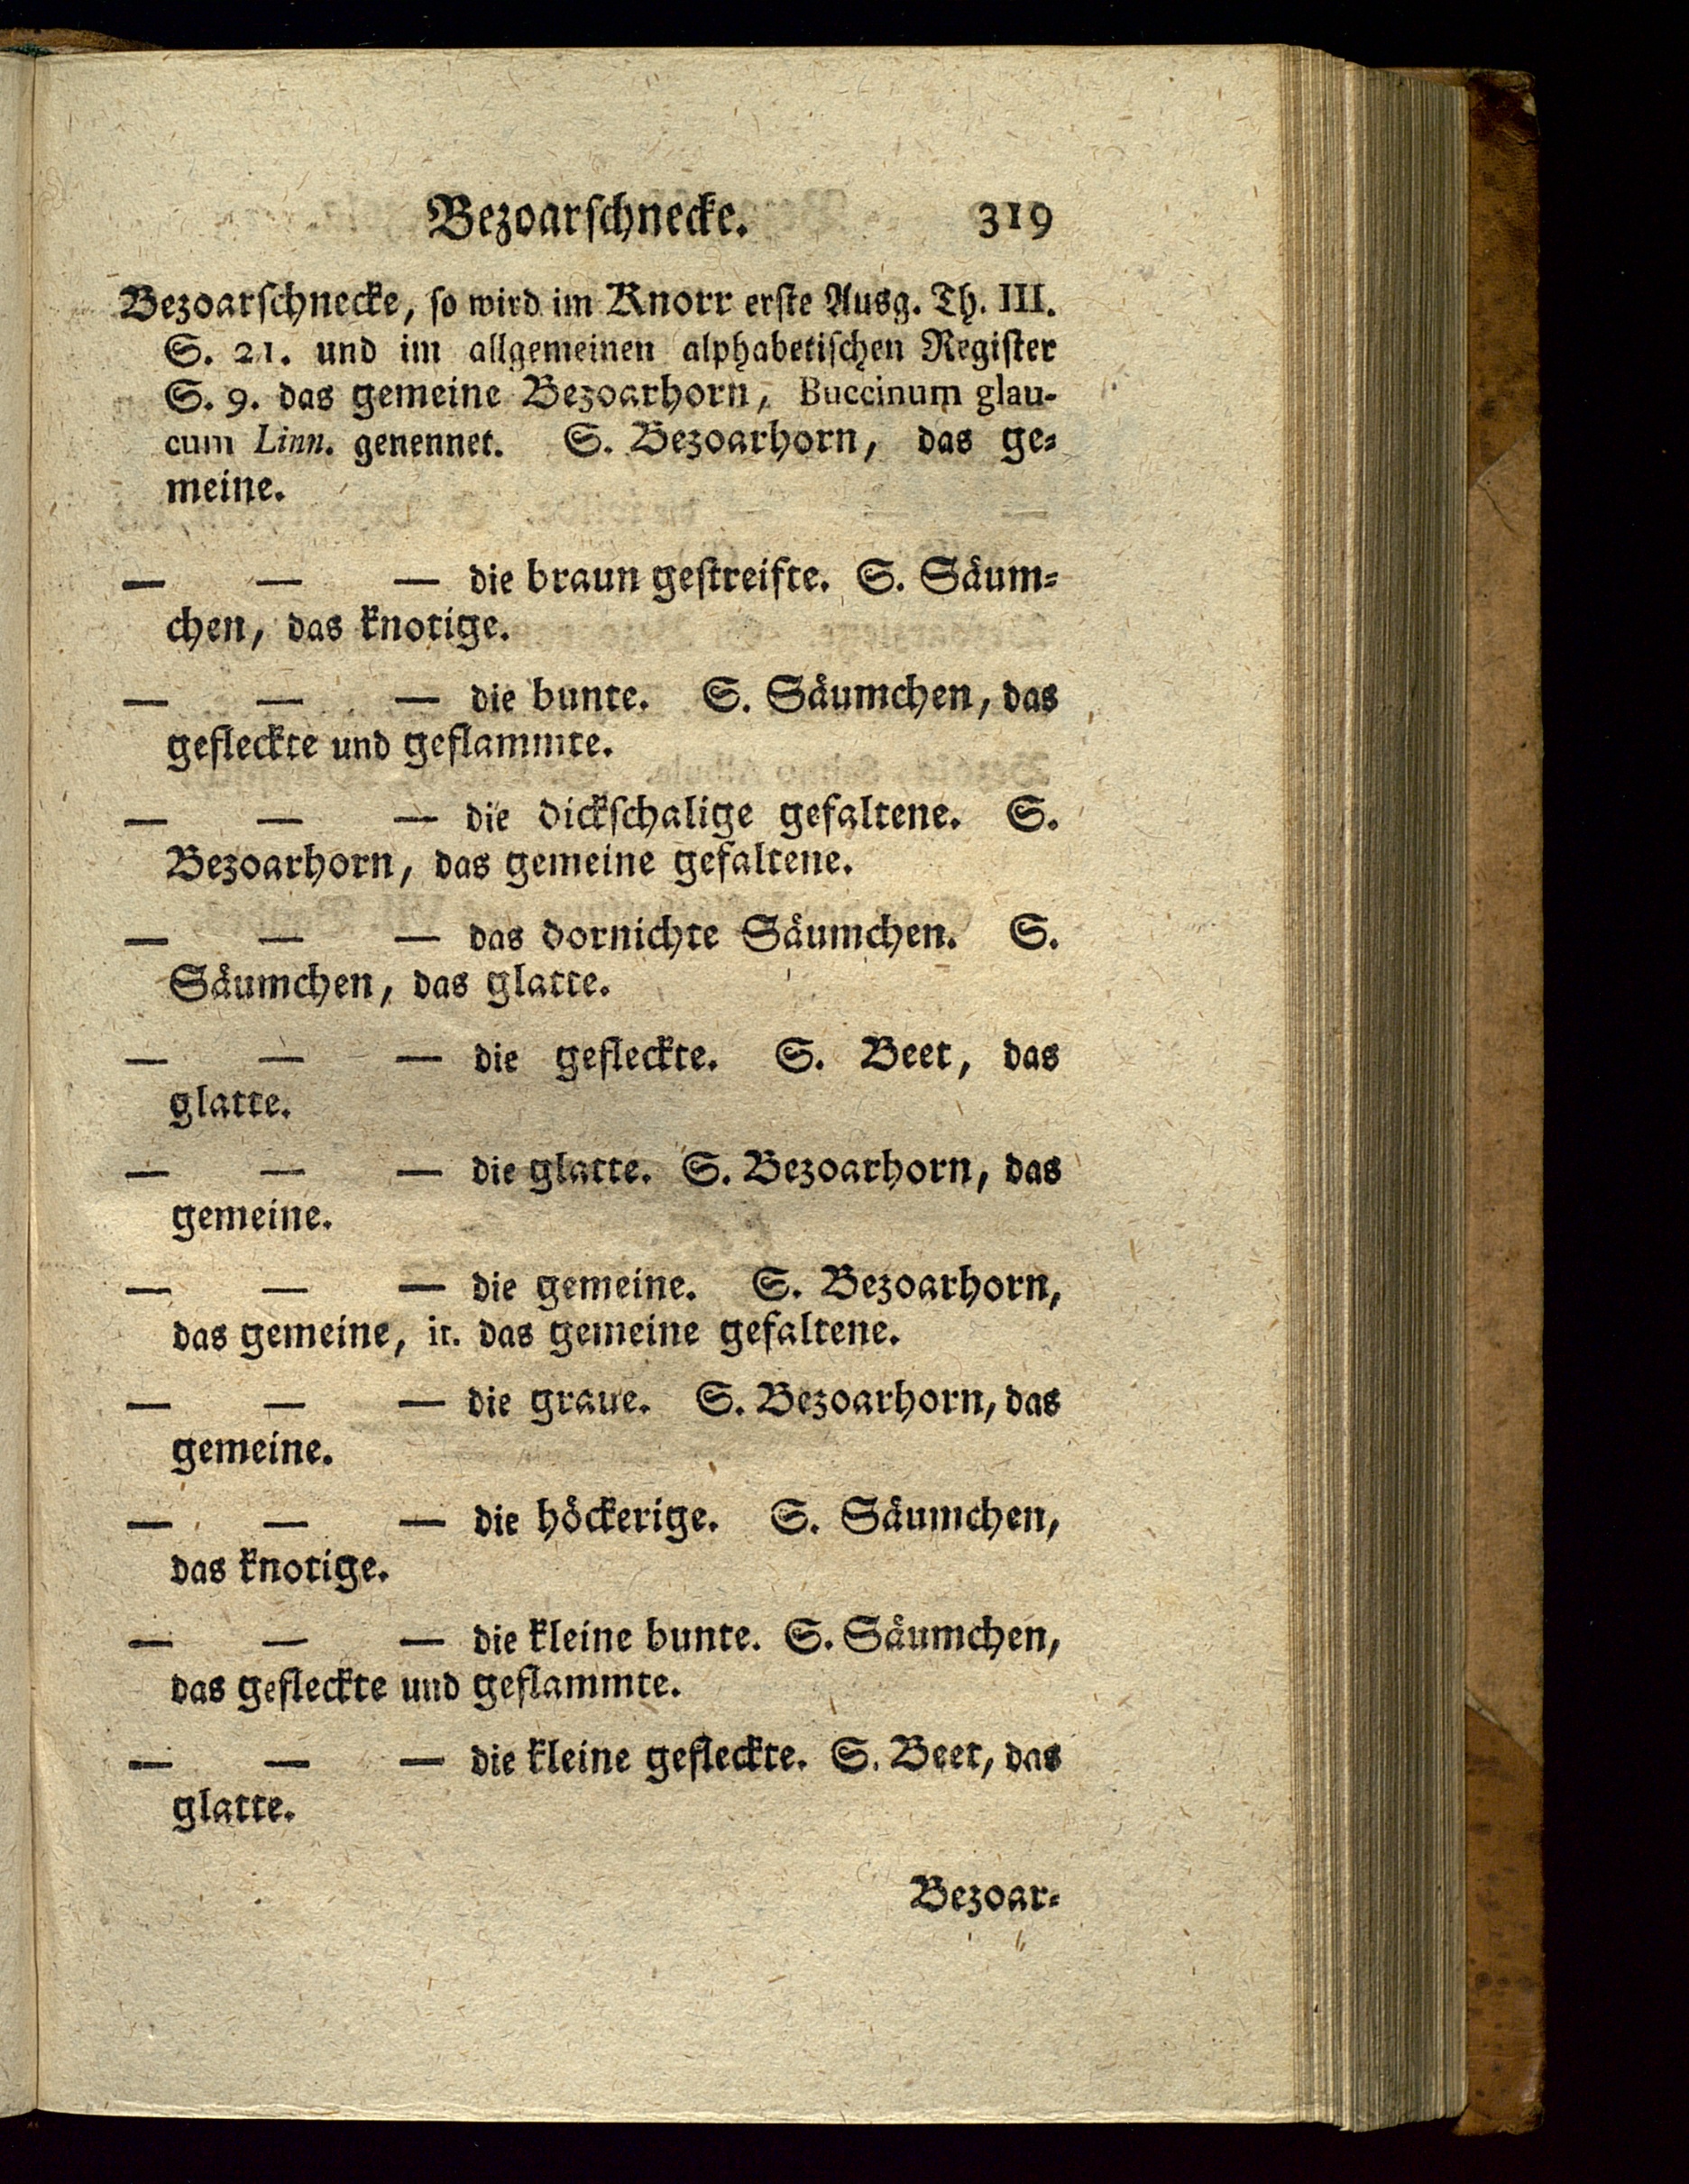 Bezoarſchnecke. 319
Bezoarſchnecke, ſo wird im Knorr erſte Ausg. Th. III.
S. 21. und im allgemeinen alphabetiſchen Regiſter
S. 9. das gemeine Bezoarhorn, Buccinum glau-
cum Linn. genennet. S. Bezoarhorn, das ge⸗
meine.
— — — die braun geſtreifte. S. Säum⸗
chen, das knotige.
— — — die bunte. S. Säumchen, das
gefleckte und geflammte.
— — — die dickſchalige gefaltene. S.
Bezoarhorn, das gemeine gefaltene.
— — — das dornichte Säumchen. S.
Säumchen, das glatte.
— — — die gefleckte. S. Beet, das
glatte.
— — — die glatte. S. Bezoarhorn, das
gemeine.
— — — die gemeine. S. Bezoarhorn,
das gemeine, it. das gemeine gefaltene.
— — — die graue. S. Bezoarhorn, das
gemeine.
— — — die höckerige. S. Säumchen,
das knotige.
— — — die kleine bunte. S. Säumchen,
das gefleckte und geflammte.
— — — die kleine gefleckte. S. Beet, das
glatte.
Bezoar⸗